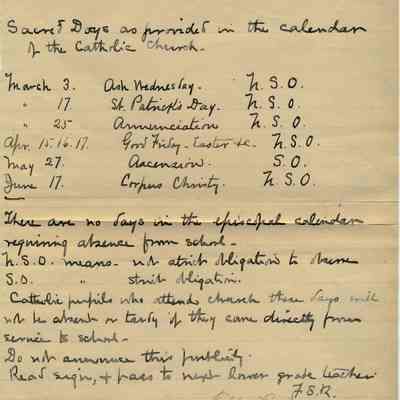 Sacred Days as provided in the calendar
of the Catholic Church.
March 3. Ash Wednesday. N. S. O.
" 17. St. Patrick's Day. N. S. O.
" 25 Annunciation N. S. O.
Apr. 15. 16. 17. Good Friday - Easter &c. N. S. O.
May 27. Ascension. S. O.
June 17. Corpus Christy. N. S. O.
There are no days in the episcopal calendar
requiring absence from school -
N. S. O. means - not strict obligation to observe
S. O. " strict obligation.
Catholic pupils who attend church these days will
not be absent or tardy if they come directly from
service to school -
Do not announce this publicly.
Read, sign, & pass to next lower grade teacher
F. S. R.